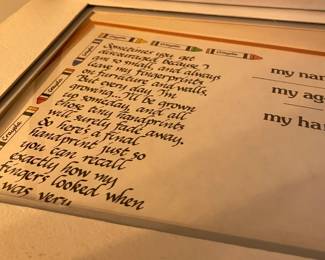 Crayola Crayola Crayola
Sometimes you get
discouraged because I
am so small, and always
leave my fingerprints
on furniture and walls.
But every day, I'm
growing. I'll be grown
up someday, and all
those tiny handprints
will surely fade away.
So here's a final
handprint just so
you can recall
exactly how my
fingers looked when
I was very
my nam
my ag
my ha